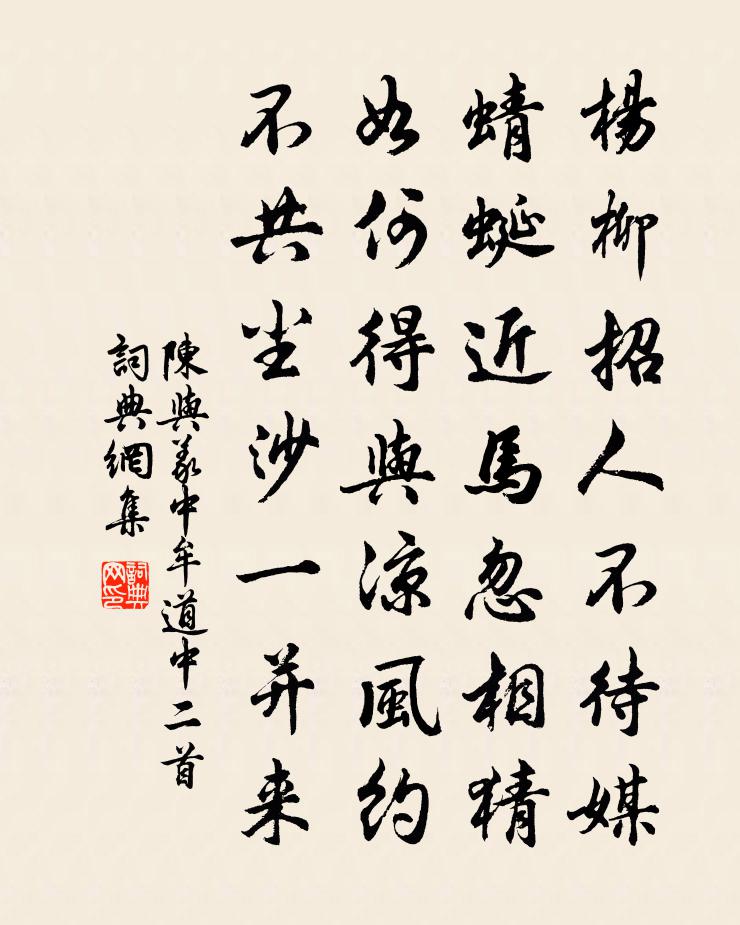 楊柳招人不待媒
蜻蜓近馬忽相猜
如何得與涼風約
不共尘沙一并来
陳與義中牟道中二首
詞典網集
詞典网印